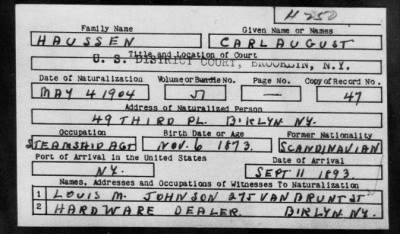 H 250
Family Name Given Name or Names
HAUSSEN CARL AUGUST
Title and Location of Court
U. S. DISTRICT COURT, BROOKLYN, N.Y.
Date of Naturalization Volume or Bundle No. Page No. Copy of Record No.
MAY 4 1904 51 — 47
Address of Naturalized Person
49 THIRD PL. B'KLYN NY.
Occupation Birth Date or Age Former Nationality
STEAMSHIP AGT NOV. 6 1873. SCANDINAVIAN
Port of Arrival in the United States Date of Arrival
N.Y. SEPT 11 1893.
Names, Addresses and Occupations of Witnesses To Naturalization
1 LOUIS M. JOHNSON 275 VAN BRUNT ST
2 HARDWARE DEALER. B'KLYN NY.